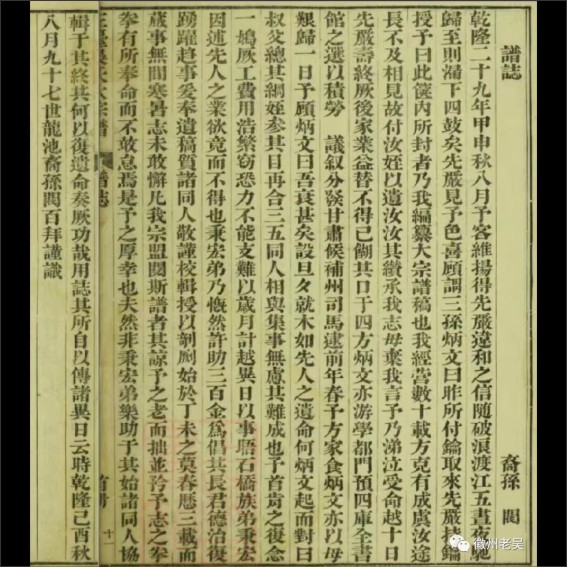 譜誌
裔孫　閎
乾隆二十九年甲申秋八月予客維揚得先嚴違和之信隨破浪渡江五晝夜馳
歸至則漏下四鼓矣先嚴見予色喜顧謂三孫炳文曰昨所付鑰取來先嚴持鑰
授予曰此篋內所封者乃我編纂大宗譜稿也我經營數十載方克有成虞汝途
長不及相見故付汝姪以遺汝汝其纘承我志毋棄我言予乃涕泣受命越十日
先嚴壽終厥後家業益替不得已餬其口于四方炳文亦游學都門預四庫全書
館之選以積勞　議叙分發甘肅候補州司馬逮前年春予方家食炳文亦以母
艱歸一日予顧炳文曰吾衰甚矣設旦夕就木如先人之遺命何炳文起而對曰
叔父總其綱姪參其目再合三五同人相與集事無慮其難成也予首肯之復念
一鳩厥工費用浩繁窃恐力不能支難以歲月計越異日以事晤石橋族弟秉宏
因述先人之業欲竟而不得也秉宏弟乃慨然許助三百金爲倡其長君德治復
踴躍趋事爰奉遺稿質諸同人敬謹校輯授以剞劂始於丁未之莫春歷三載而
蕆事無間寒暑志未敢懈凡我宗盟閱斯譜者其諒予之老而拙並矜予志之拳
拳有所奉命而不敢息焉是予之厚幸也夫然非秉宏弟樂助于其始諸同人協
譜誌
首冊
十
輯于其終其何以復遺命奏厥功哉用誌其所自以傳諸異日云時乾隆己酉秋
八月九十七世龍池裔孫閎百拜謹識
徽州老吴